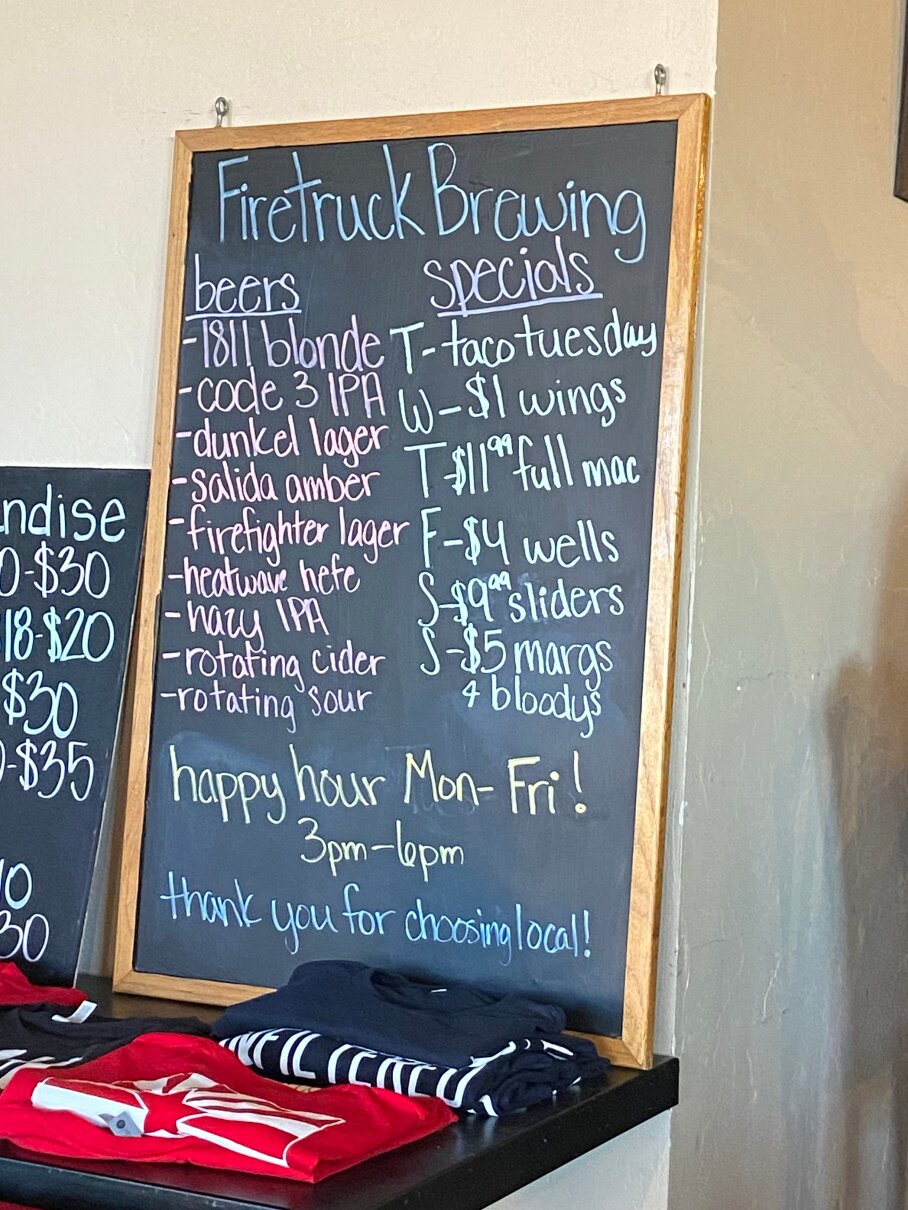 Firetruck Brewing
beers
-1811 blonde
-code 3 IPA
-dunkel lager
-salida amber
-firefighter lager
-heatwave hefe
-hazy IPA
-rotating cider
-rotating sour
specials
T-taco tuesday
W-$1 wings
T-$11.99 full mac
F-$4 wells
S-$9.99 sliders
S-$5 margs
& bloodys
happy hour Mon-Fri!
3pm-6pm
thank you for choosing local!
ndise
0-$30
18-$20
$30
-$35
10
30
NFILTERED